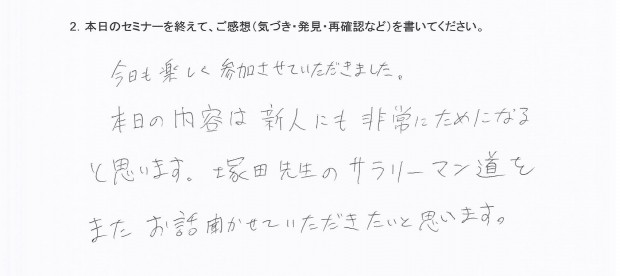 2. 本日のセミナーを終えて、ご感想（気づき・発見・再確認など）を書いてください。
今日も楽しく参加させていただきました。
本日の内容は新人にも非常にためになる
と思います。塚田先生のサラリーマン道を
またお話聞かせていただきたいと思います。